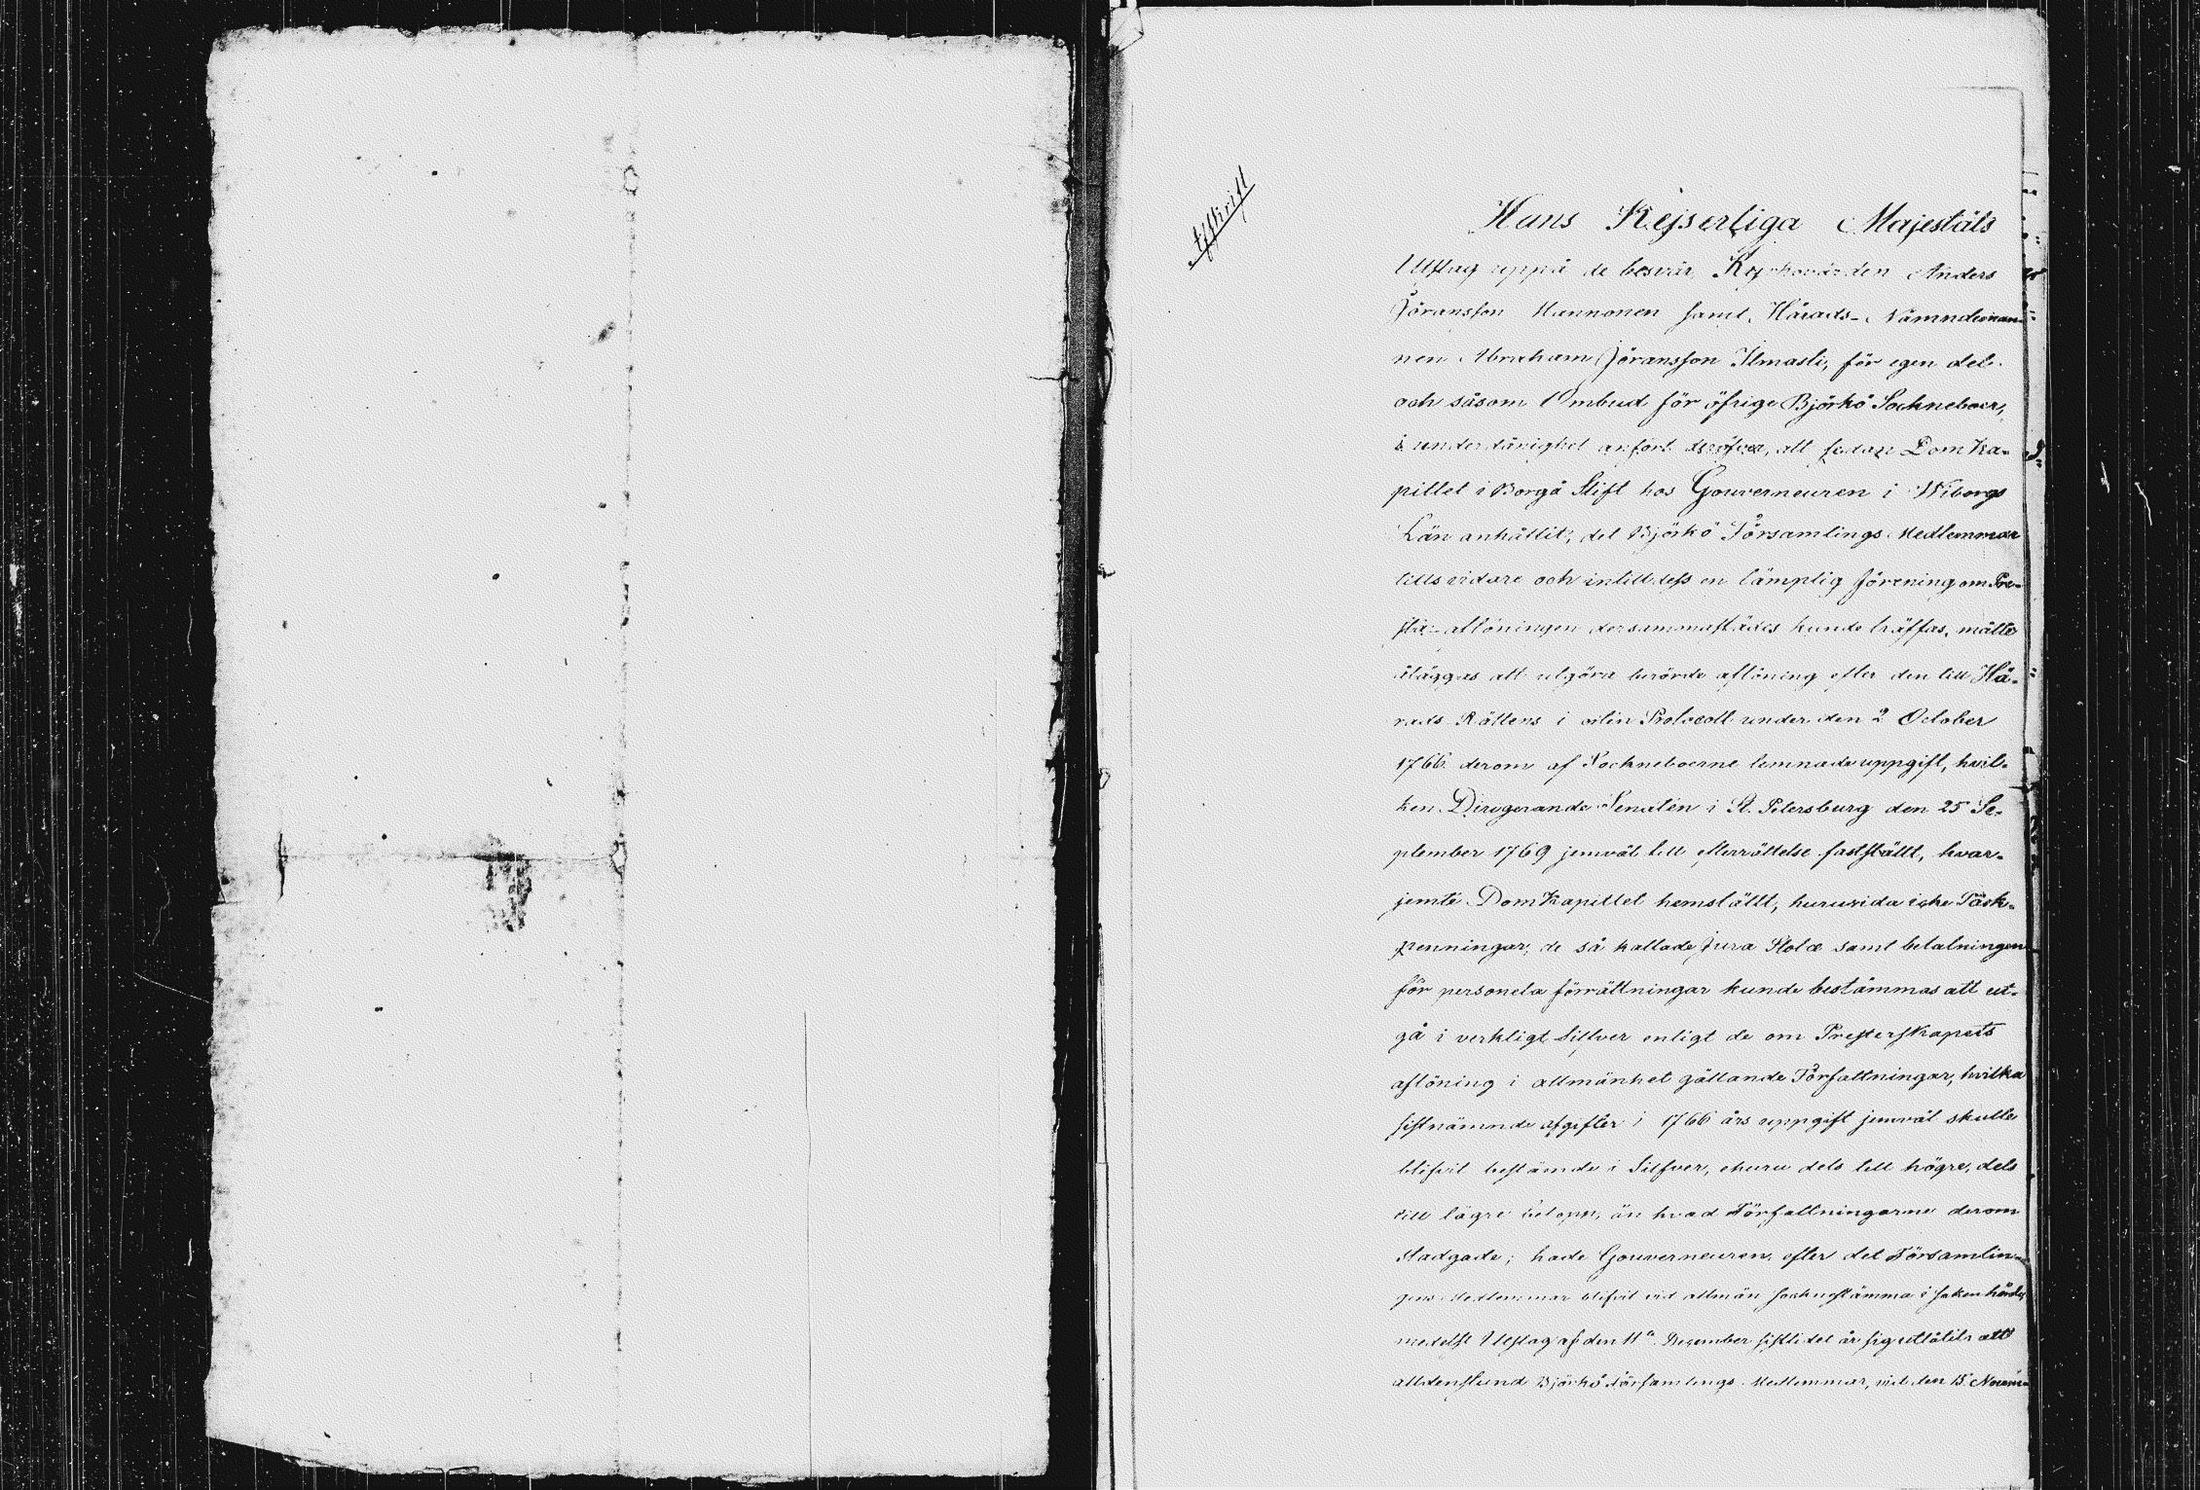 Afskrift
Hans Kejserliga Majestäts
Utslag uppå de besvär, Kyrkovärden Anders
Jöransson Hannonen samt Härads-Nämndeman-
nen Abraham Jöransson Ilmasti, för egen del
och såsom Ombud för öfrige Björkö Sockneboer,
i underdånighet anfört deröfver, att sedan DomKa-
pitlet i Borgå Stift hos Gouverneuren i Wiborgs
Län anhållit, det Björkö Församlings Medlemmar
tills vidare och intilldess en lämplig förening om Pre-
sta-aflöningen dersammastädes kunde träffas, måtte
åläggas att utgöra berörde aflöning efter den till Hä-
rads Rättens i orten Protocoll under den 2 October
1766 derom af Sockneboerne lemnade uppgift, hvil-
ken Dirigerande Senaten i St. Petersburg den 25 Se-
ptember 1769 jemväl till efterrättelse fastställt, hvar-
jemte DomKapitlet hemställt, huruvida icke Påsk-
penningar, de så kallade Jura Stolæ samt betalningen
för personela förrättningar kunde bestämmas att ut-
gå i verkligt Silfver enligt de om Presterskapets
aflöning i allmänhet gällande Författningar, hvilka
sistnämnde afgifter i 1766 års uppgift jemväl skulle
blifvit bestämde i Silfver, ehuru dels till högre, dels
till lägre belopp, än hvad Författningarne derom
stadgade; hade Gouverneuren, efter det Församlin-
gens Medlemmar blifvit vid allmän socknestämma i saken hörde,
medelst Utslag af den 11a December sistlidet år sig utlåtit: att
alldenstund Björkö Församlings Medlemmar, vid den 15 Novem-